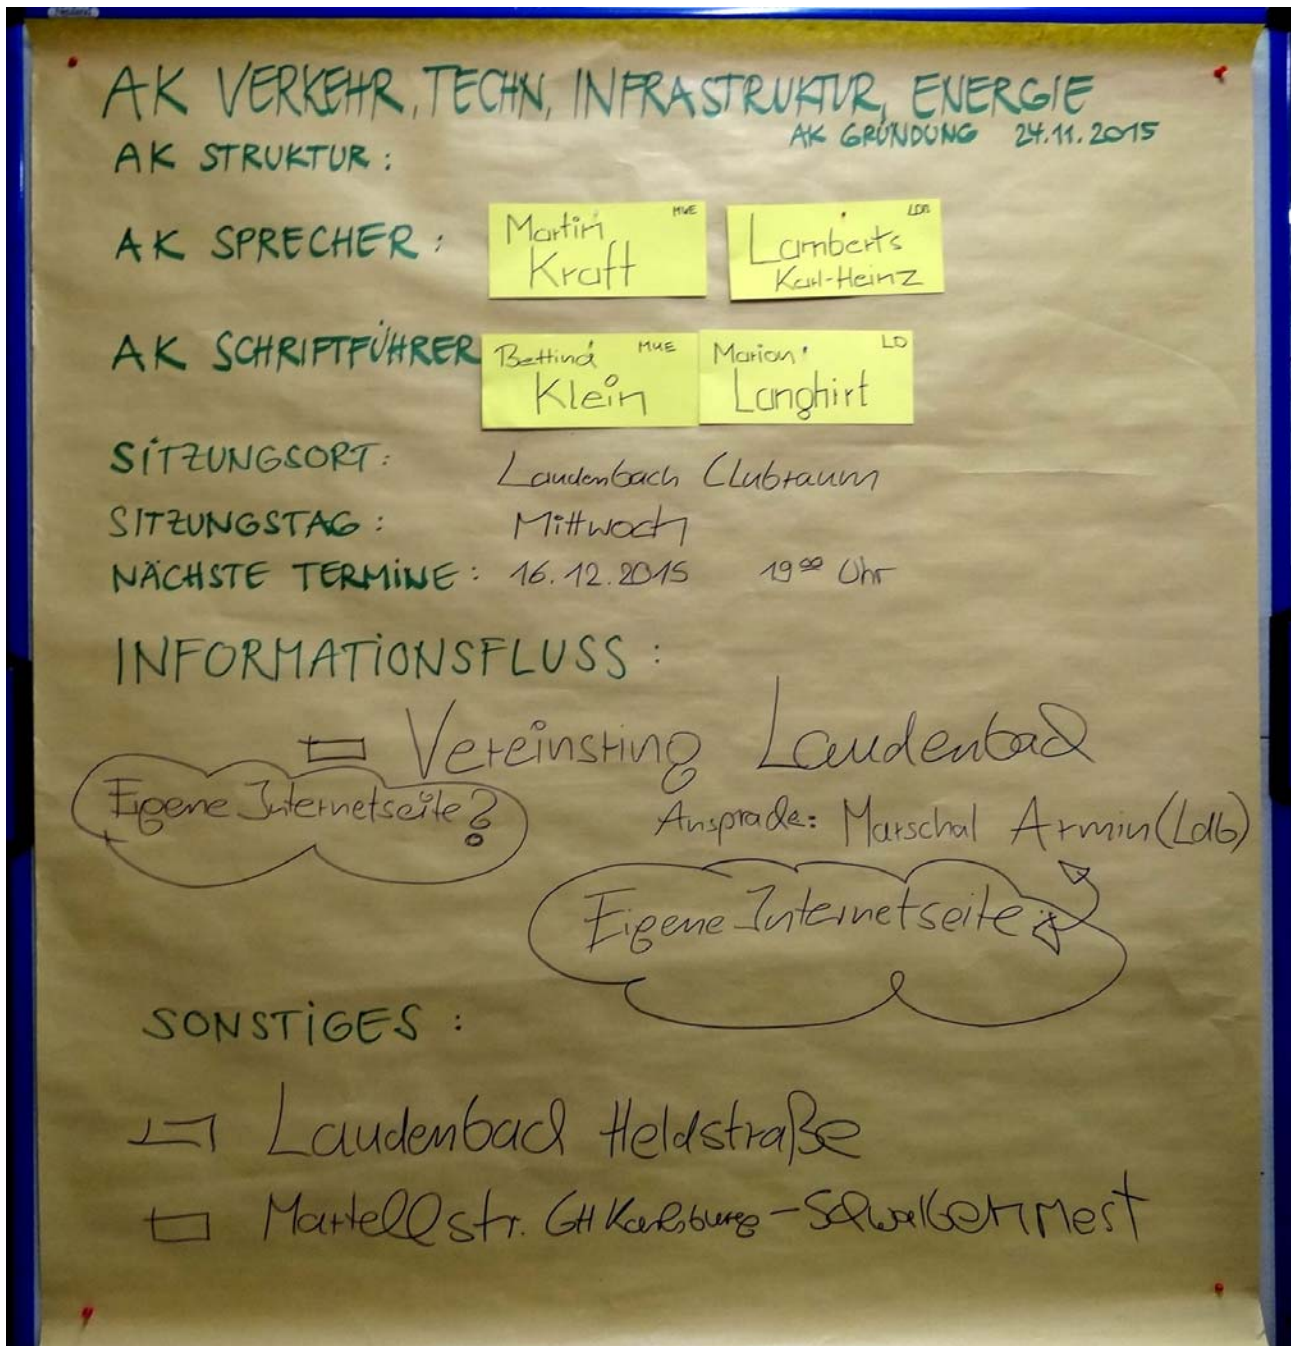 AK VERKEHR, TECHN, INFRASTRUKTUR, ENERGIE
AK GRÜNDUNG 24.11.2015
AK STRUKTUR :
AK SPRECHER :
Martin MUE
Kraft
Lamberts LDB
Karl-Heinz
AK SCHRIFTFÜHRER
Bettina MUE
Klein
Marion LD
Langhirt
SITZUNGSORT : Laudenbach Clubraum
SITZUNGSTAG : Mittwoch
NÄCHSTE TERMINE : 16.12.2015 19⁰⁰ Uhr
INFORMATIONSFLUSS :
Vereinsring Laudenbach
Eigene Internetseite?
Ansprache: Marschal Armin (Ldb)
Eigene Internetseite
SONSTIGES :
Laudenbach Heldstraße
Martellstr. GH Karlsburg - Schwalbennest